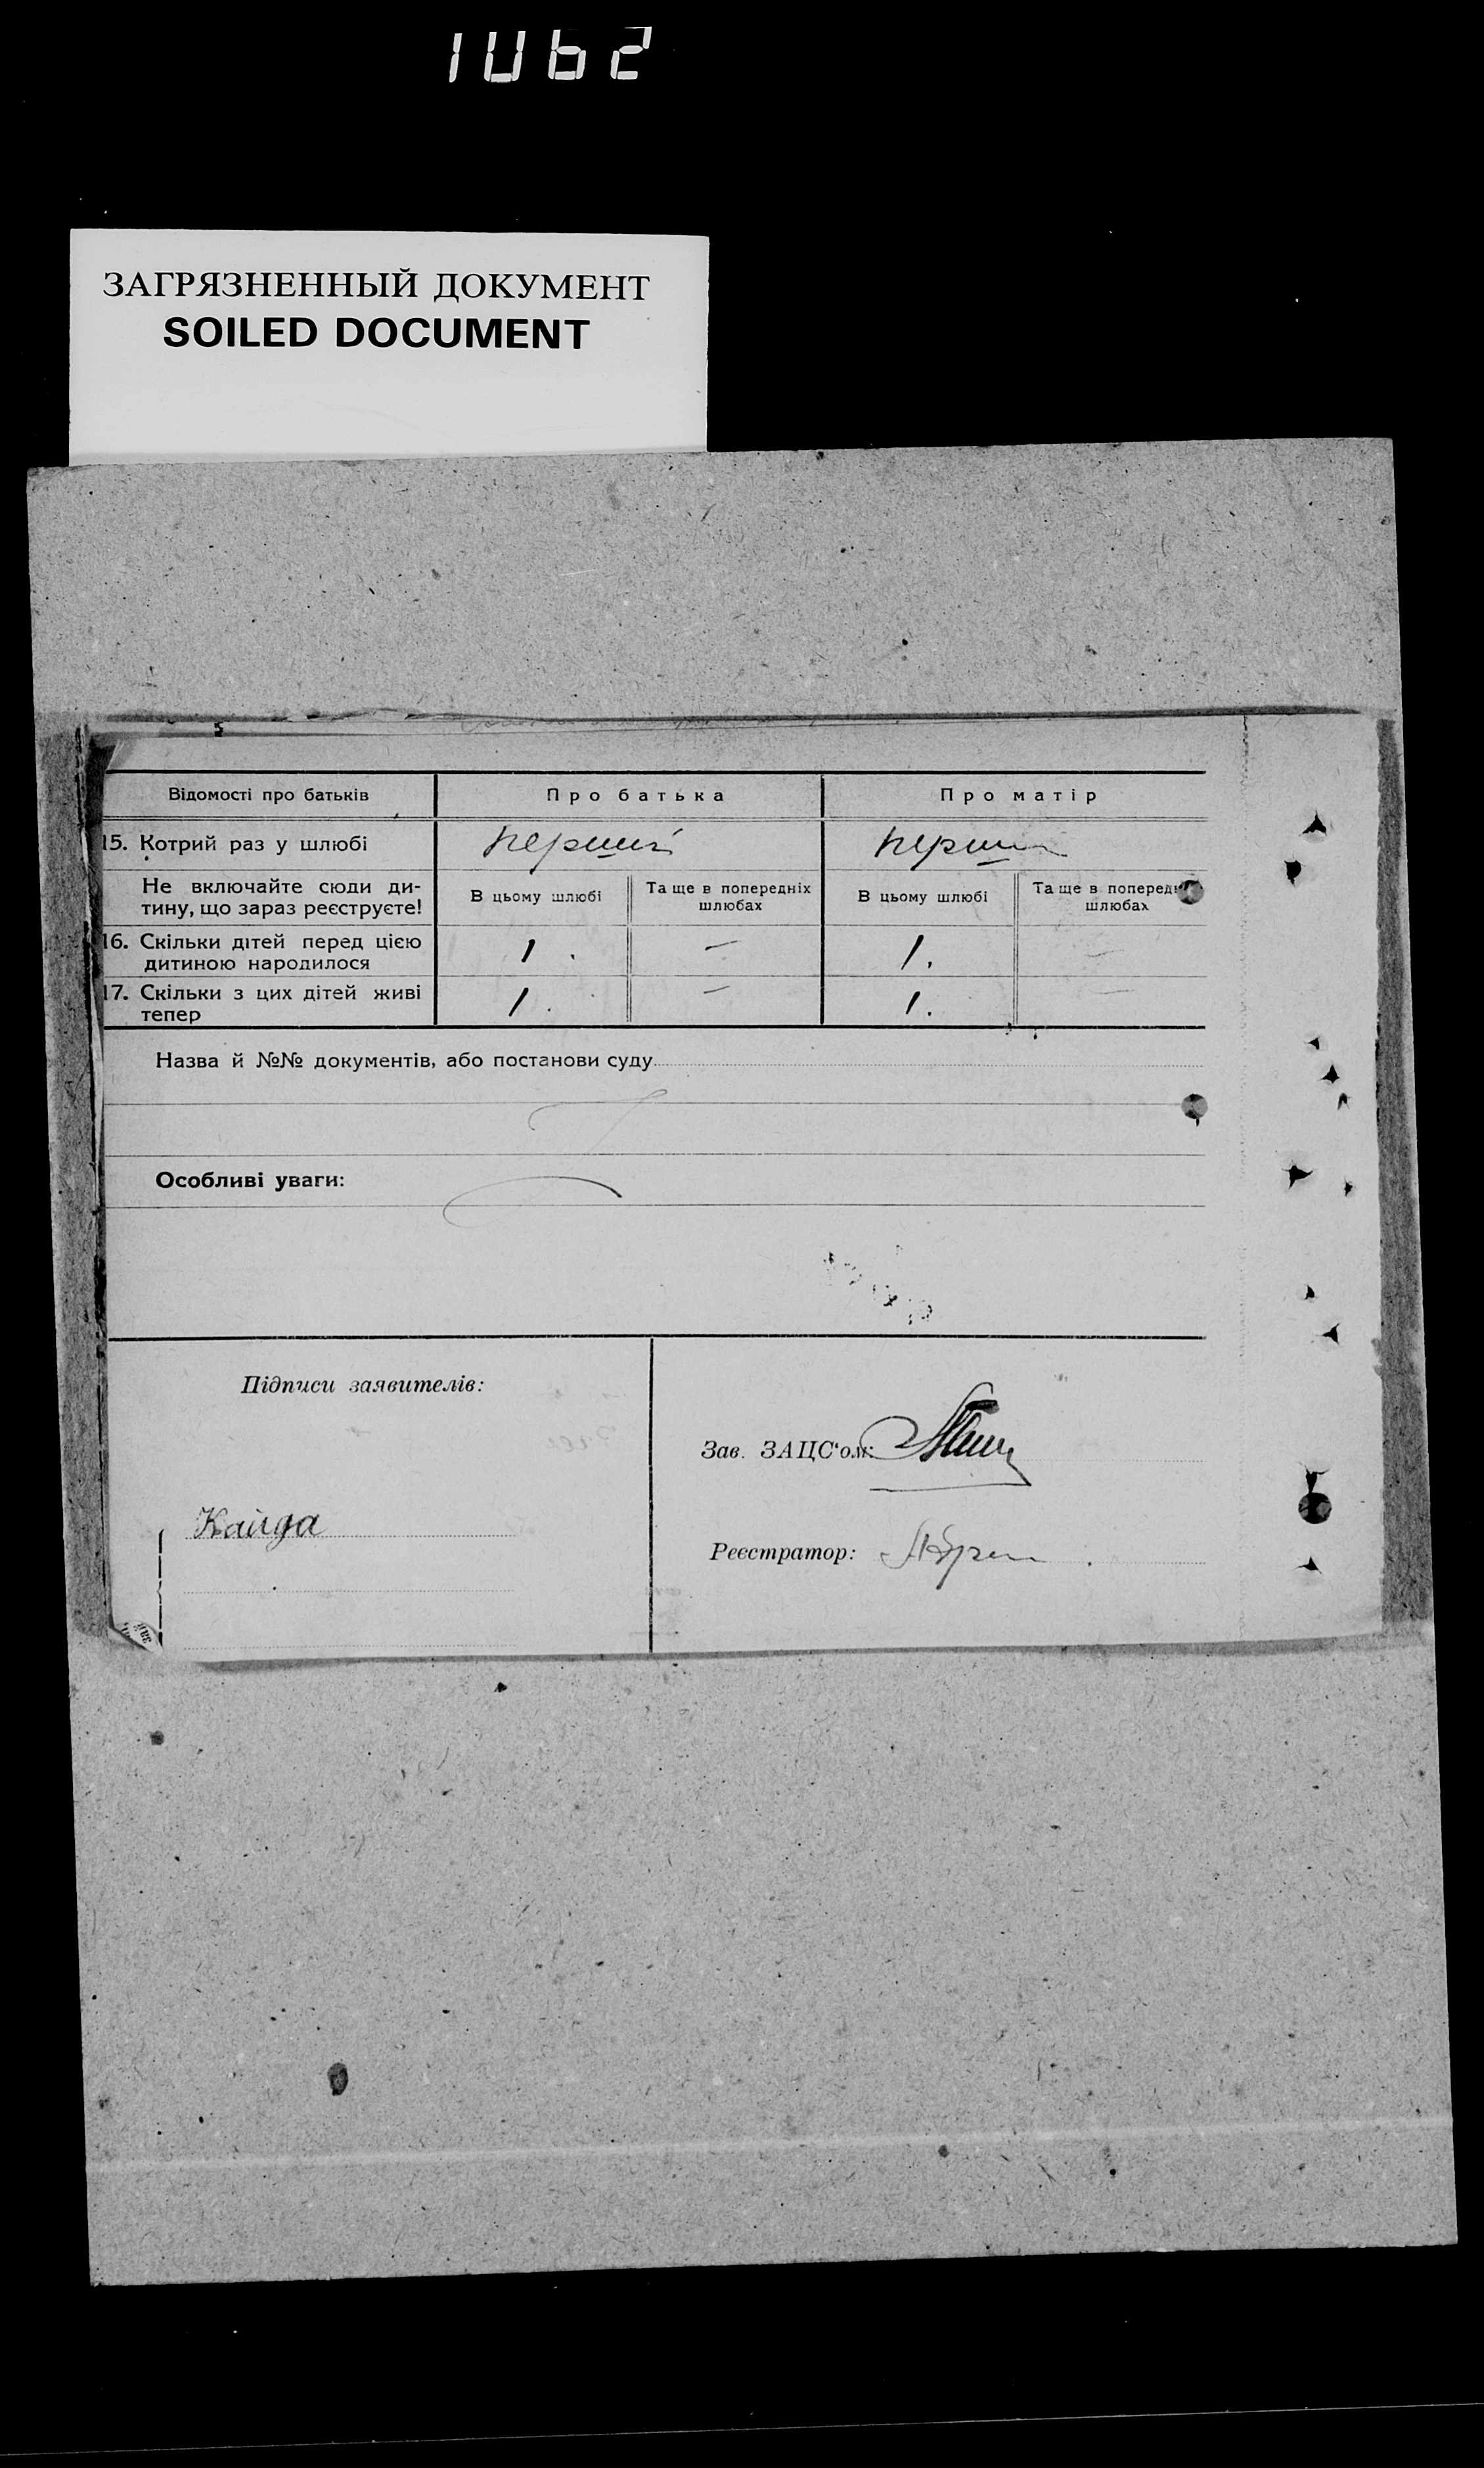 1062
ЗАГРЯЗНЕННЫЙ ДОКУМЕНТ
SOILED DOCUMENT
Відомості про батьків
Про батька
Про матір
15. Котрий раз у шлюбі
перший
перший
Не включайте сюди ди-
тину, що зараз реєструєте!
В цьому шлюбі
Та ще в попередніх
шлюбах
В цьому шлюбі
Та ще в поперед
шлюбах
16. Скільки дітей перед цією
дитиною народилося
1.
—
1.
—
17. Скільки з цих дітей живі
тепер
1.
—
1.
—
Назва й №№ документів, або постанови суду
Особливі уваги:
Підписи заявителів:
Кайда
Зав. ЗАЦС'ом:
Реєстратор: